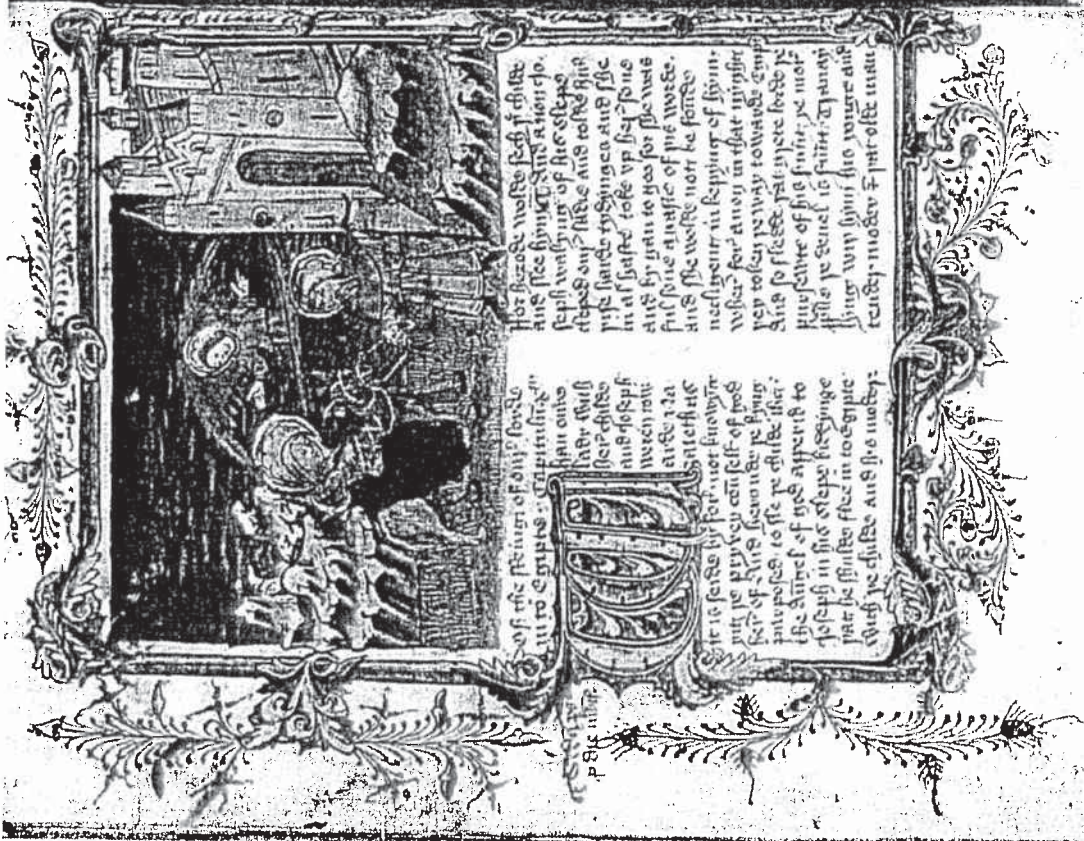 Of the fleeing of oure lorde
in to Egypte. Capitulum
han oure
lady with
her childe
and Joseph
weren
arde na
zareth
it is seide before not knowynge
yit þe pryve counseil of god
herof. And how the kynge
purposed to sle þe childe Jhu
the aungel of god apperid to
Joseph in his slepe biddynge
that he shulde flee in to egipte
with þe childe and his moder
ffor herode wolde sech þe childe
and slee hym. And anon Jo
seph wakynge of his slepe
cleped oure lady and tolde hir
þise harde tydynges and she
in al haste toke vp hir sone
and bygan to goo for she was
ful sore agaste of þis worde
and she wolde not be founde
necligent in kepynge of hym.
wherfor anon in that nyght
þey token þe way towarde Egip
And so fledde þat grete lorde þe
pursewte of his seruant ye more
þilke þe deuel his seruant. Trauay
lynge wiþ hym his yonge and
tender moder & þat olde man